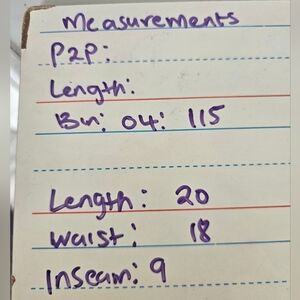 Measurements
P2P:
Length:
Bn: 04: 115
Length: 20
Waist: 18
Inseam: 9